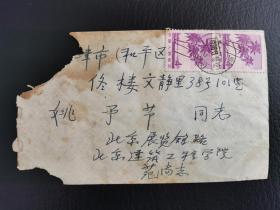 津市(和平区
佟楼文静里38号101室
姚予节同志
北京展览馆路
北京建筑工程学院
范尚志